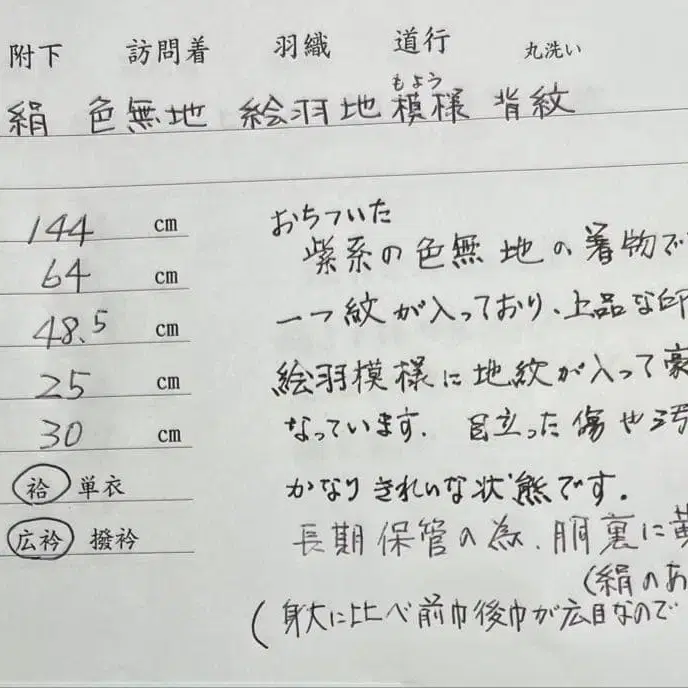 附下 訪問着 羽織 道行 丸洗い
もよう
絹 色無地 絵羽地模様 背紋
144 cm
64 cm
48.5 cm
25 cm
30 cm
袷 単衣
広衿 撥衿
おちついた
紫系の色無地の着物で
一つ紋が入っており、上品な印
絵羽模様に地紋が入って豪
なっています. 目立った傷や汚
かなりきれいな状態です.
長期保管の為、胴裏に黄
(絹のあ
(身丈に比べ前巾後巾が広目なので